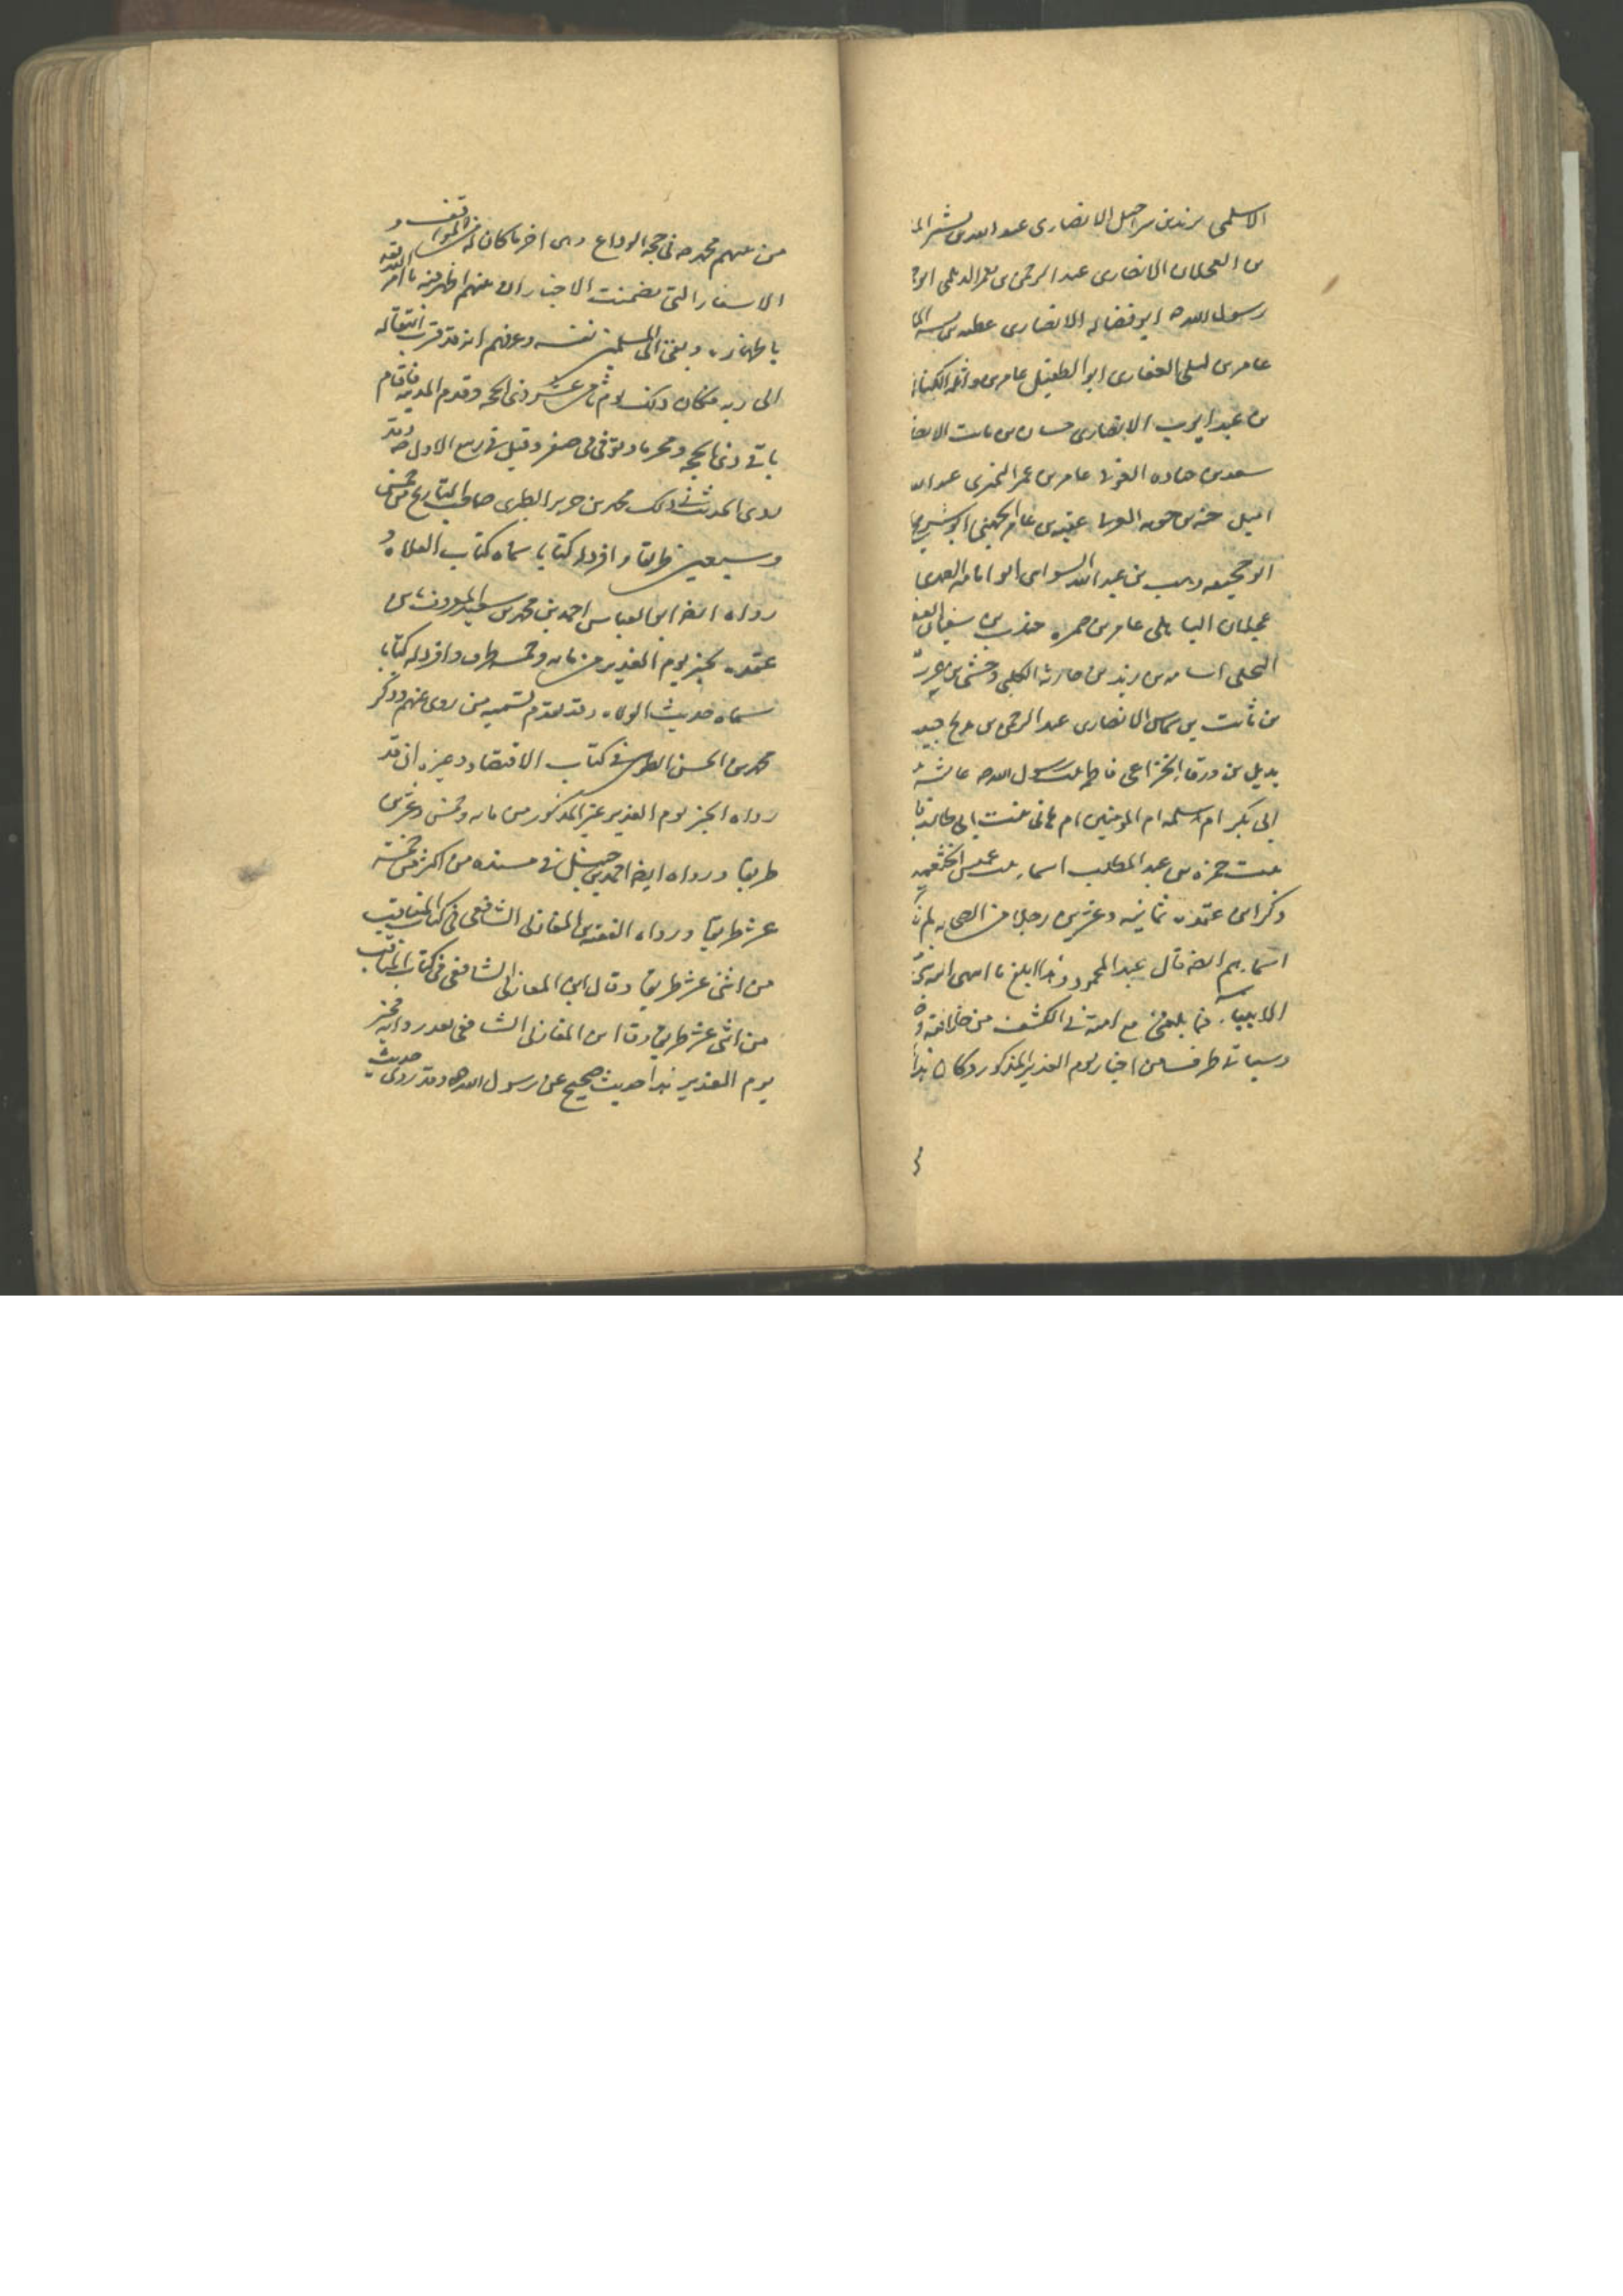 الاسلمى يزيد بن شراحيل الانصارى عبد الله بن بشر الما
بن العجلان الانصارى عبد الرحمن بن يعمر الديلمى ابو
رسول الله ص ابو فضاله الانصارى عطيه بن بسر الما
عامر بن ليلى الغفارى ابو الطفيل عامر بن واثله الكنانى
بن عبد الرب الانصارى حسان بن ثابت الانصا
سعد بن جناده العوفى عامر بن عمير النميرى عبد الله
اميل حبه بن جوين العرنى عقبه بن عامر الجهنى ابو
ابو جحيفه وهب بن عبد الله السواى ابو امامه الصدى
عجلان الباهلى عامر بن حمره جندب بن سفيان
البجلى اسامه بن زيد بن حارثه الكلبى وحشى بن حرب
بن ثابت بن شماس الانصارى عبد الرحمن بن مدلج حبيب
بديل بن ورقا الخزاعى فاطمه بنت رسول الله ص عائشه
ابى بكر ام سلمه ام المومنين ام هانى بنت ابى طالب فا
بنت حمزه بن عبد المطلب اسماء بنت عميس الخثعميه
وذكر ابن عقده ثمانيه وعشرين رجلا من الصحابه لم
اسمايهم ايضا قال عبد المحمود وهذا ابلغ ما انتهى اليه
الانبياء فيما بلغنى مع امته فى الكشف من خلافته و
وسياتى طرف من اخبار يوم الغدير المذكور وكان هذا
من منهم محمد ص فى حجه الوداع وهى اخر ما كان له من المواقف و
الاسفار التى تضمنت الاخبار ان منهم اظهر فيه ما امر الله تعالى
باظهاره ونعى الى المسلمين نفسه وعرفهم انه قد قرب انتقاله
الى ربه فكان ذلك يوم ثامن عشر ذى الحجه وقدم المدينه فاقام
باقى ذى الحجه ومحرما وتوفى فى صفر وقيل فى ربيع الاول وقد
روى الحديث فى ذلك محمد بن جرير الطبرى صاحب التاريخ من خمس
وسبعين طريقا وافرد له كتابا سماه كتاب الولايه و
رواه ايضا ابو العباس احمد بن محمد بن سعيد المعروف بابن
عقده بخبر يوم الغدير من مايه وخمسه طرق وافرد له كتابا
سماه حديث الولايه وقد تقدم تسميه من روى عنهم وذكر
محمد بن الحسن الطوسى فى كتاب الاقتصاد وغيره ان قد
رواه الخبر يوم الغدير غير المذكور من مايه وخمس وعشرين
طريقا ورواه ايضا احمد بن حنبل فى مسنده من اكثر من خمسة
عشر طريقا ورواه الفقيه ابن المغازلى الشافعى فى كتاب المناقب
من اثنى عشر طريقا وقال ابن المغازلى الشافعى فى كتاب المناقب
من اثنى عشر طريقا وقا ابن المغازلى الشافعى بعد روايه خبر
يوم الغدير هذا حديث صحيح عن رسول الله ص وقد روى حديث